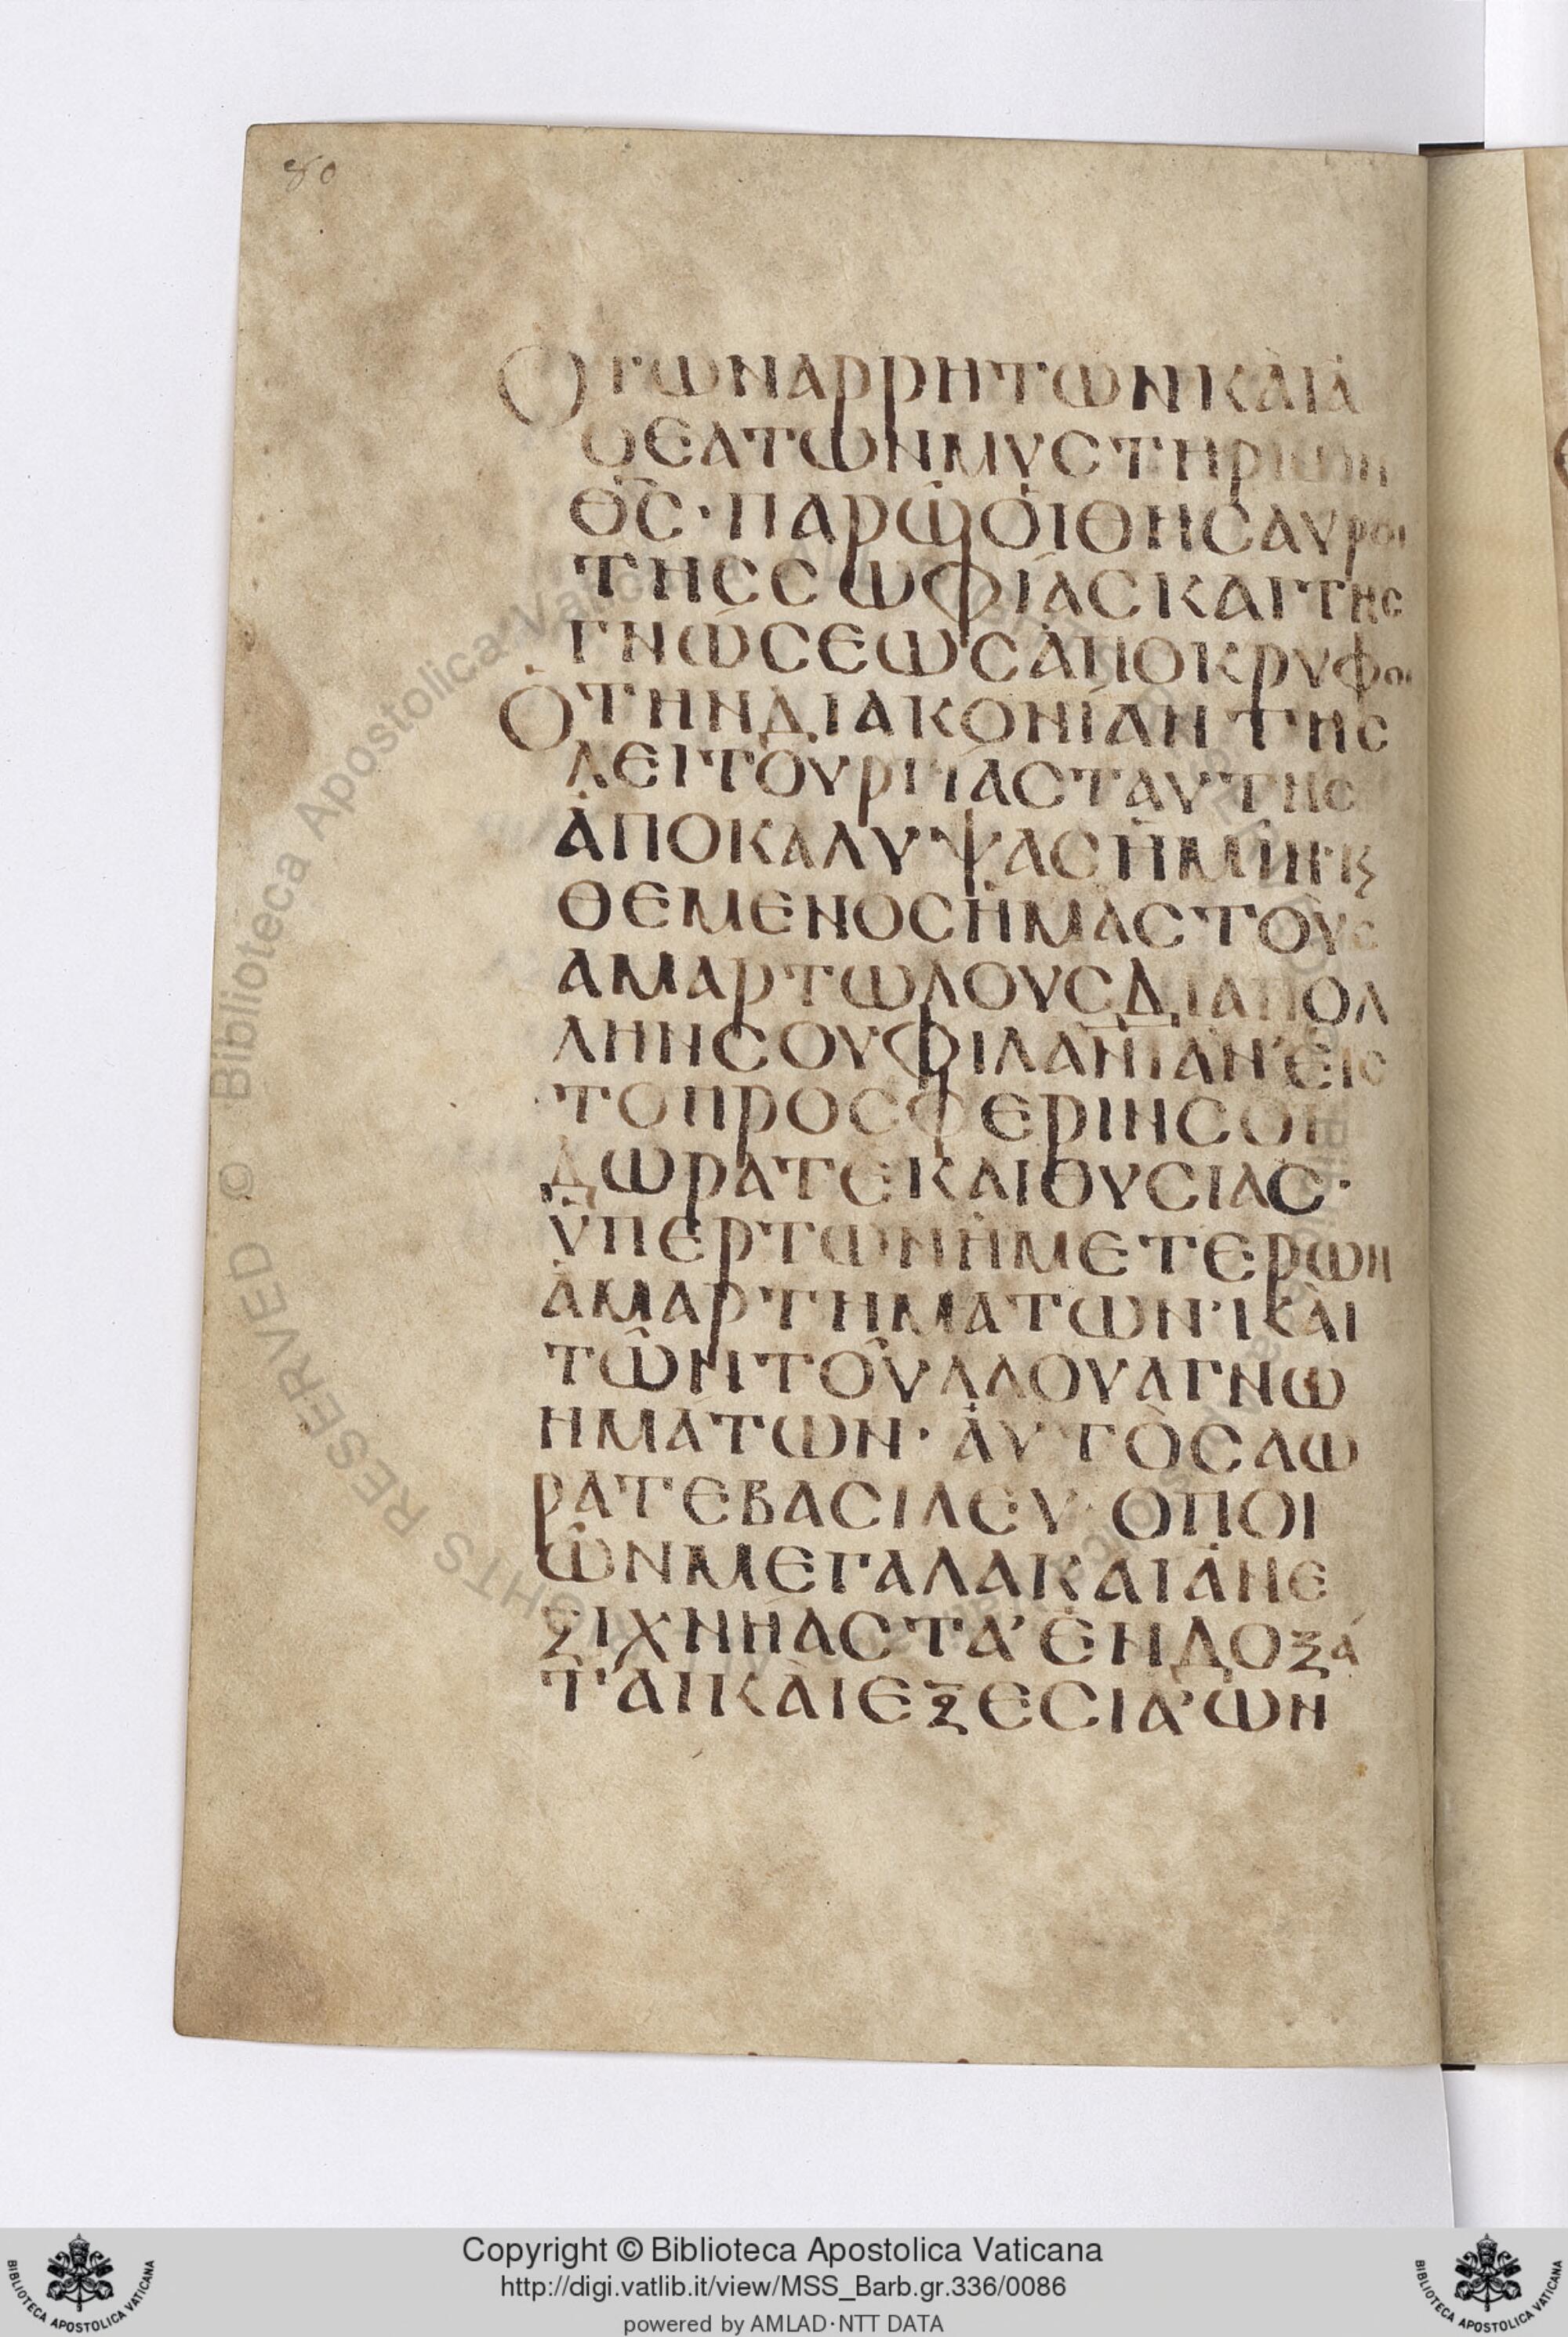 80
ΟΤΩΝΑΡΡΗΤΩΝΚΑῚἈ
ΘΕΑΤΩΝΜΥΣΤΗΡΙΩΝ
ΘΣ̅·ΠΑΡΩὉΙΘΗΣΑΥΡΟΙ
ΤΗΣΣΩΦΊΑΣΚΑΙΤΗΣ
ΓΝΏΣΕΩΣἈΠΟΚΡΥΦΟΙ
ὉΤΗΝΔΙΑΚΟΝΊΑΝΤΗΣ
ΛΕΙΤΟΥΡΓΊΑΣΤΑΥΤΗΣ
ἈΠΟΚΑΛΥΨΑΣΗΜΙΝ·Κ
ΘΕΜΕΝΟΣΗΜΑΣΤΟῪΣ
ΑΜΑΡΤΩΛΟΥΣΔΙΑΠΟΛ
ΛΗΝΣΟΥΦΙΛΑΝΙΑΝ ΕΙΣ
ΤΟΠΡΟΣΦΕΡΙΝΣΟΙ
ΔΩΡΑΤΕΚΑΙΘΥΣΙΑΣ·
ΥΠΕΡΤΩΝΗΜΕΤΕΡΩΝ
ἉΜΑΡΤΗΜΑΤΩΝ·ΚΑῚ
ΤΩ͂ΝΤΟΥ͂ΛΑΟΥΑΓΝΩ
ΗΜΆΤΩΝ·ἈΥΤῸΣΑΩ
ΡΑΤΕΒΑΣΙΛΕΥ·ΟΠΟΙ
ΩΝΜΕΓΑΛΑΚΑΙἈΝΕ
ΞΙΧΝΗΆΣΤΑ ἘΝΔΟΞΆ
ΤΑΙΚΑῚΕΞΕΣΙΑ ΩΝ
Copyright © Biblioteca Apostolica Vaticana
http://digi.vatlib.it/view/MSS_Barb.gr.336/0086
powered by AMLAD·NTT DATA